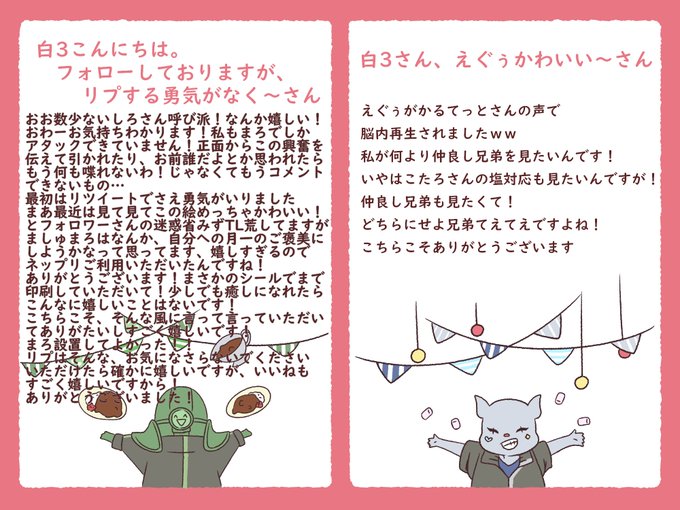 白3こんにちは。
フォローしておりますが、
リプする勇気がなく〜さん
おお数少ないしろさん呼び派！なんか嬉しい！
おわーお気持ちわかります！私もまろでしか
アタックできていません！正面からこの興奮を
伝えて引かれたり、お前誰だよとか思われたら
もう何も喋れないわ！じゃなくてもうコメント
できないもの…
最初はリツイートでさえ勇気がいりました
まあ最近は見て見てこの絵めっちゃかわいい！
とフォロワーさんの迷惑省みずTL荒してますが
ましゅまろはなんか、自分への月一のご褒美に
しようかなって思ってます、嬉しすぎるので
ネップリご利用いただいたんですね！
ありがとうございます！まさかのシールでまで
印刷していただいて！少しでも癒しになれたら
こんなに嬉しいことはないです！
こちらこそ、そんな風に言って言っていただい
てありがたいしすごく嬉しいです！
まろ設置してよかった！
リプはそんな、お気になさらないでください
いただけたら確かに嬉しいですが、いいねも
すごく嬉しいですから！
ありがとうございました！
白3さん、えぐぅかわいい〜さん
えぐぅがかるてっとさんの声で
脳内再生されましたｗｗ
私が何より仲良し兄弟を見たいんです！
いやはこたろさんの塩対応も見たいんですが！
仲良し兄弟も見たくて！
どちらにせよ兄弟てえてえですよね！
こちらこそありがとうございます